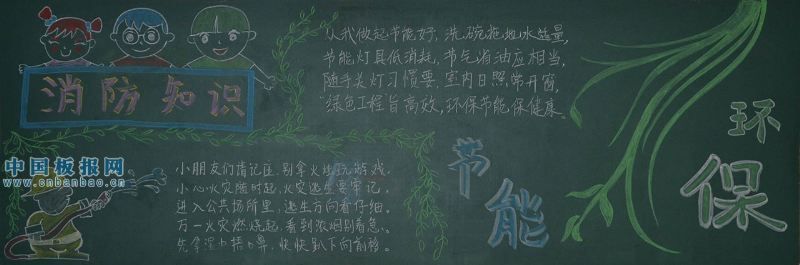 消防知识
从我做起节能好，洗碗拖地水适量，
节能灯具低消耗，节气省油应相当，
随手关灯习惯要，室内日照常开窗，
绿色工程旨高效，环保节能保健康。
环保
节能
中国板报网
www.cnbanbao.cn
小朋友们请记住，别拿火烛玩游戏，
小心火灾随时起，火灾逃生要牢记，
进入公共场所里，逃生方向看仔细，
万一火灾燃烧起，看到浓烟别着急，
先拿湿巾捂口鼻，快快趴下向前移。